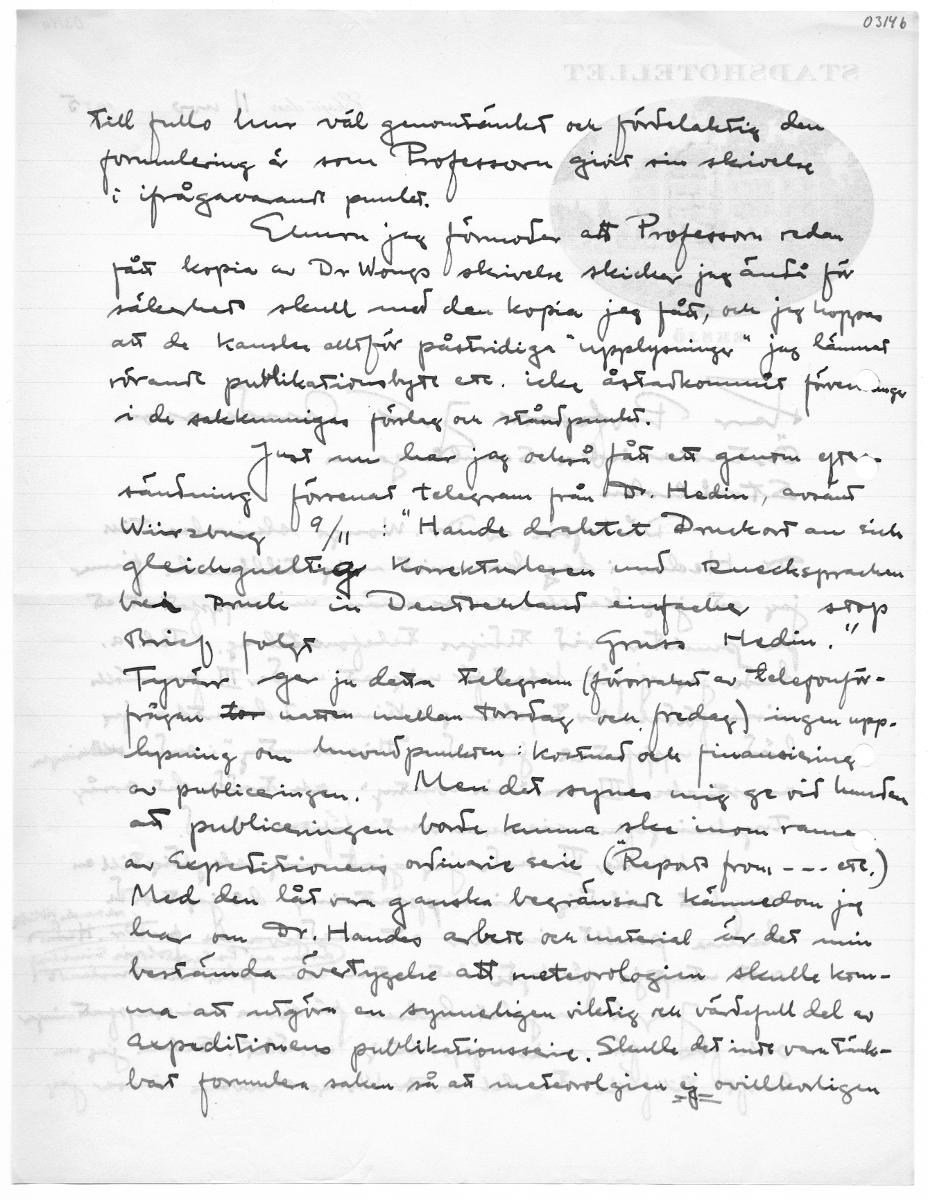 03146
till fullo hur väl genomtänkt och fördelaktig den
formulering är som Professorn givit sin skrivelse
i ifrågavarande punkt.
Ehuru jag förmodar att Professorn redan
fått kopia av Dr Wongs skrivelse skickar jag ändå för
säkerhets skull med den kopia jag fått, och jag hoppas
att de kanske alltför påstridiga "upplysningar" jag lämnat
rörande publikationsbyte etc. icke åstadkommit förven ingar
i de sakkunnigas förslag och ståndpunkt.
Just nu har jag också fått ett genom efter-
sändning försenat telegram från Dr. Hedin, avsänt
Würzburg 9/11 : "Haude drahtet Druckort an sich
gleichgueltig Korrekturlesen und Ruecksprachen
bei Druck in Deutschland einfacher stop
Brief folgt Gruss Hedin."
Tyvärr ger ju detta telegram (förorsakat av telefonför-
frågan natten mellan torsdag och fredag) ingen upp-
lysning om huvudpunkten: kostnad och finansiering
av publiceringen. Men det synes mig ge vid handen
att publiceringen borde kunna ske inom rame
av Expeditionens ordinarie serie ("Reports from --- etc.)
Med den låt vara ganska begränsade kännedom jag
har om Dr. Haudes arbete och material är det min
bestämda övertygelse att meteorologien skulle kom-
ma att utgöra en synnerligen viktig och värdefull del av
Expeditionens publikationsserie. Skulle det inte vara tänk-
bart formulera saken så att meteorolgien ej ovillkorligen